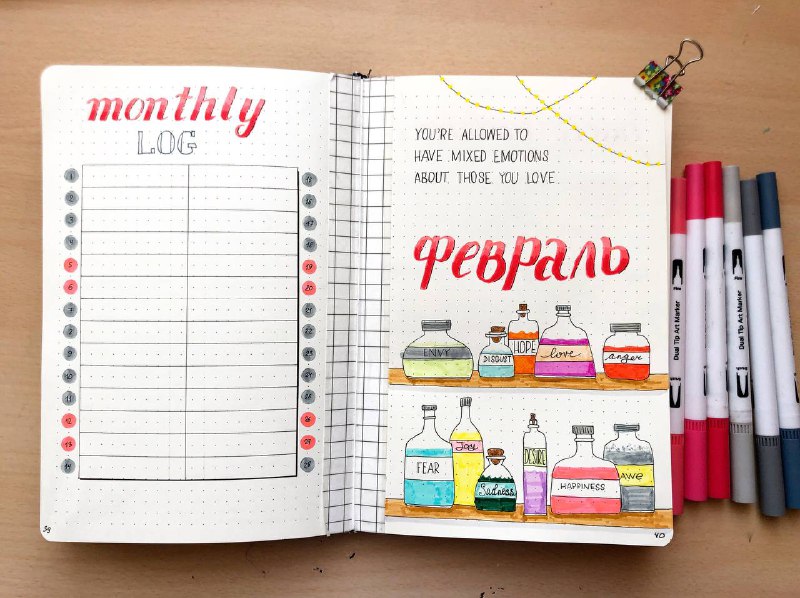 monthly
LOG
1
2
3
4
5
6
7
8
9
10
11
12
13
14
15
16
17
18
19
20
21
22
23
24
25
26
27
28
39
YOU'RE ALLOWED TO
HAVE MIXED EMOTIONS
ABOUT THOSE YOU LOVE.
февраль
ENVY
DISGUST
HOPE
love
anger
FEAR
Joy
Sadness
DESIRE
HAPPINESS
AWE
40
Dual Tip Art Marker
Dual Tip Art Marker
Dual Tip Art Marker